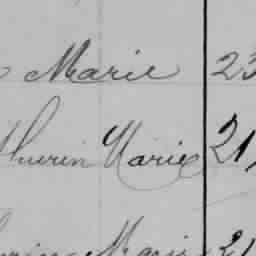 Marie 23
thurin Marie 21
Marie 21